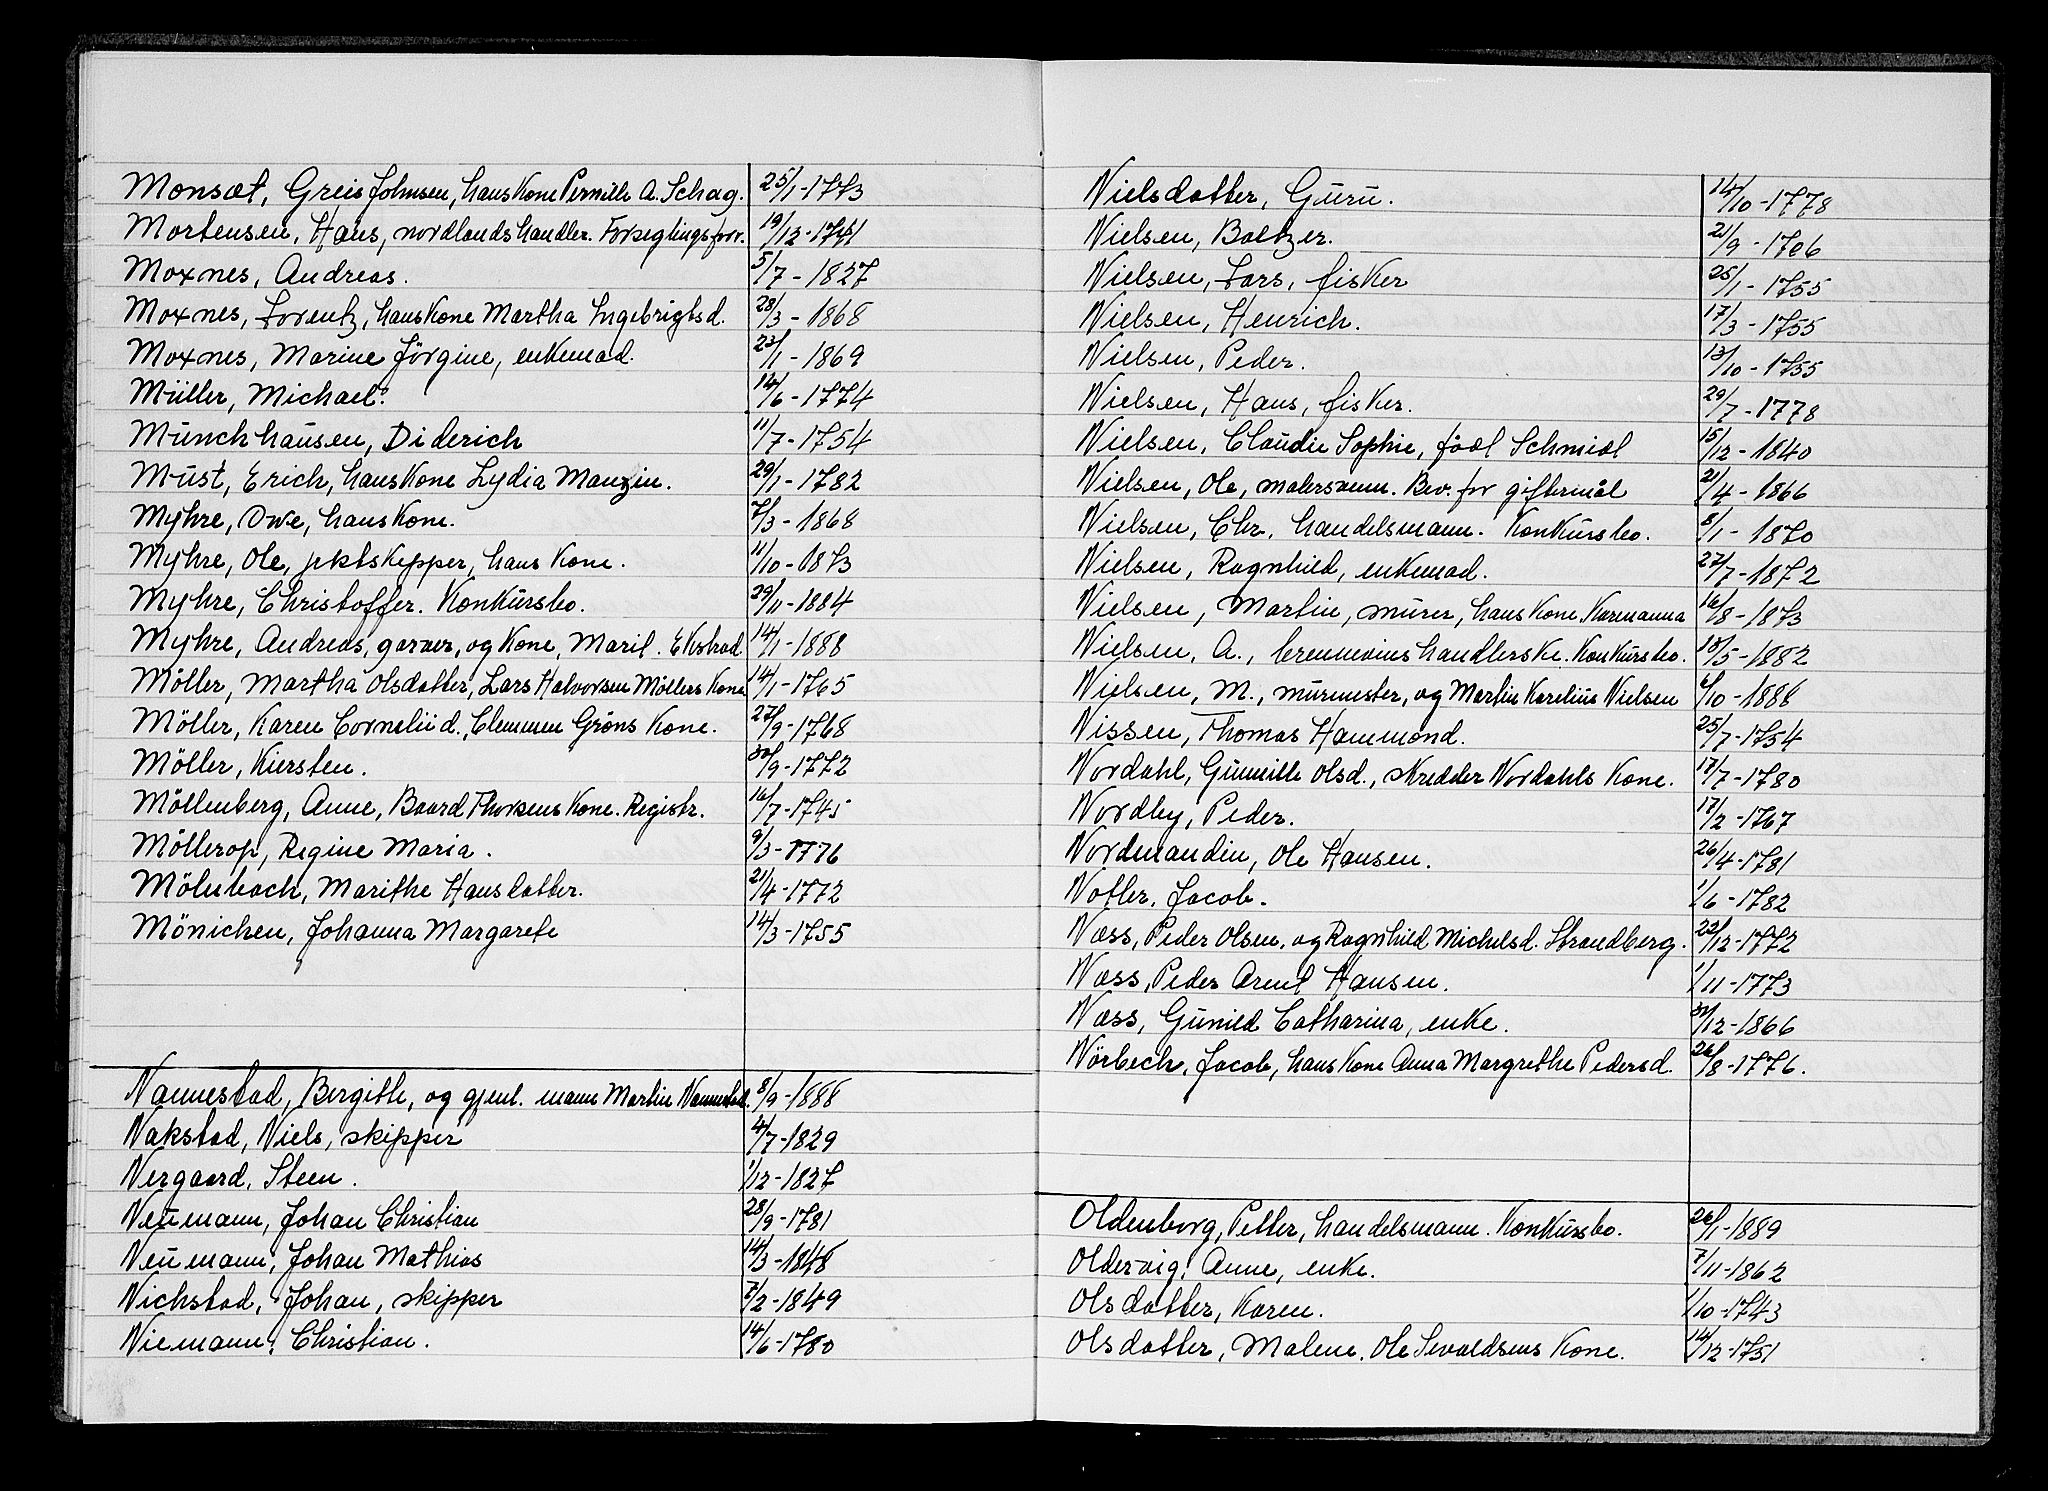 Monsæt, Greis Johnsen, hans Kone Pernille A. Schag. 25/1-1773
Mortensen, Hans, nordlandshandler. Forseglingsforr. 19/12-1741
Moxnes, Andreas. 5/7-1827
Moxnes, Lorentz, hans Kone Martha Ingebrigtsd. 28/3-1868
Moxnes, Marine Jörgine, enkemad. 23/1-1869
Müller, Michael. 14/6-1774
Münchhausen, Diderich 11/7-1754
Must, Erich, hans Kone Lydia Manzin. 29/1-1782
Myhre, Owe, hans Kone. 7/3-1868
Myhre, Ole, jektskipper, hans Kone. 11/10-1873
Myhre, Christoffer. Konkursbo. 29/11-1884
Myhre, Andreas, garver, og Kone, Marit. Ekstrad 14/1-1888
Möller, Martha Olsdatter, Lars Halvorsen Möllers Kone 14/1-1765
Möller, Karen Cornelii d., Clemmen Gröns Kone. 27/9-1768
Möller, Kiersten. 30/9-1772
Möllenberg, Anne, Baard Thorsens Kone. Registr. 16/7-1745
Möllerop, Regine Maria. 9/3-1776
Mölnbach, Marithe Hansdatter. 21/4-1772
Mönichen, Johanna Margarete 14/3-1755
Nannestad, Bergithe, og gjenl. mann Martin Nannestad. 8/9-1888
Nakstad, Niels, skipper 4/7-1829
Nergaard, Steen. 1/12-1827
Neumann, Johan Christian 28/9-1781
Neumann, Johan Mathias 14/3-1848
Nichstad, Johan, skipper 7/2-1849
Niemann, Christian. 14/6-1780
Nielsdatter, Guru. 14/10-1778
Nielsen, Baltzer. 21/9-1706
Nielsen, Lars, fisker 25/1-1755
Nielsen, Henrich. 17/3-1755
Nielsen, Peder. 13/10-1755
Nielsen, Hans, fisker. 29/7-1778
Nielsen, Claudie Sophie, född Schmidl 15/12-1840
Nielsen, Ole, malersvenn. Bev. for giftermål 21/4-1866
Nielsen, Chr, handelsmann. Konkursbo. 8/1-1870
Nielsen, Ragnhild, enkemad. 27/7-1872
Nielsen, Martin, murer, hans Kone Karenanna 16/8-1873
Nielsen, A., brennevinshandlerske. Konkursbo. 18/5-1882
Nielsen, M., murmester, og Martin Karelius Nielsen 6/10-1886
Nissen, Thomas Hammond. 25/7-1754
Nordahl, Gunnille Olsd., skredder Nordahls Kone. 17/7-1780
Nordby, Peder. 17/2-1767
Nordmandin, Ole Hansen. 26/4-1781
Notler, Jacob. 1/6-1782
Næss, Peder Olsen, og Ragnhild Michelsd. Strandberg. 22/12-1772
Næss, Peder Arent Hansen. 1/11-1773
Næss, Gunild Catharina, enke. 31/12-1866
Nörbech, Jacob, hans Kone Anna Margrethe Pedersd. 26/8-1776.
Oldenborg, Petter, handelsmann. Konkursbo. 26/1-1889
Oldervig, Anne, enke. 7/11-1862
Olsdatter, Karen. 1/10-1743
Olsdatter, Malene. Ole Sevaldsens Kone. 14/12-1751